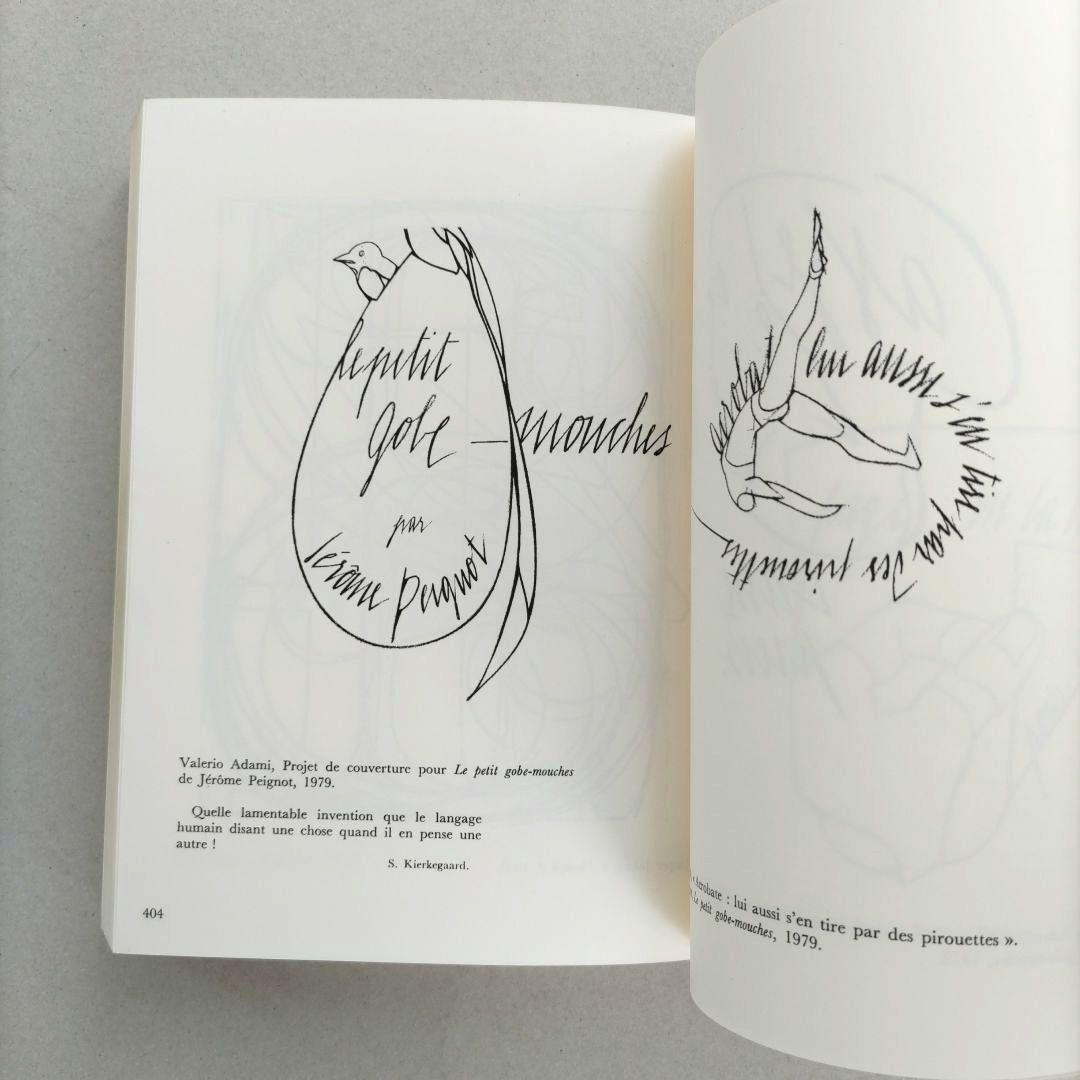 le petit
gobe – mouches
par
Jérôme Peignot
Valerio Adami, Projet de couverture pour Le petit gobe-mouches
de Jérôme Peignot, 1979.
Quelle lamentable invention que le langage
humain disant une chose quand il en pense une
autre !
S. Kierkegaard.
404
acrobat lui aussi s'en tir par des pirouettes
« Acrobate : lui aussi s'en tire par des pirouettes ».
Le petit gobe-mouches, 1979.